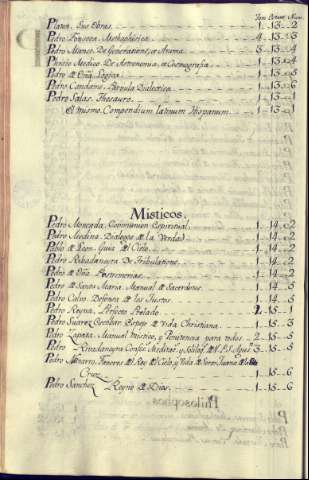 Tom. Caxon. Num.
Platon. Sus Obras. 1. 13. 2
Pedro Fonseca. Methaphisica. 4. 13. 3
Pedro Alanco. De Generatione, et Anima. 3. 13. 4
Plinio Medico. De Astronomia, et Cosmografia. 1. 13. 4
Pedro de Oña. Logica. 1. 13. 5
Pedro Candamo. Dialectica. 1. 13. 6
Pedro Salas. Thesauro. 1. 13. 1
El mismo. Compendium latinum Hispanum. 1. 13. 1
Misticos.
Pedro Moncada. Communion Espiritual. 1. 14. 2
Pedro Medina. Dialogos de la Verdad. 1. 14. 2
Pablo de Leon. Guia del Cielo. 4. 14. 2
Pedro Ribadaneyra. De Tribulatione. 1. 14. 2
Pedro de Oña. Postrimerias. 1. 14. 2
Pedro de Santa Maria. Manual de Sacerdotes. 1. 14. 5
Pedro Calvo. Defensa de las Justos. 1. 14. 5
Pedro Reyna. Perfecto Prelado. 2. 15. 1
Pedro Suarez Escobar. Espejo de Vida Christiana. 1. 15. 3
Pedro Zapata. Manual mistico, y Penitencia para todos. 2. 15. 5
Pedro Rivadaneyra 3. 15. 5
Pedro de el Rey del Cielo, y Vida de Soror Juana de la
Cruz. 1. 15. 6
Pedro Sanchez. Reyno de Dios. 1. 15. 6
Philosophos